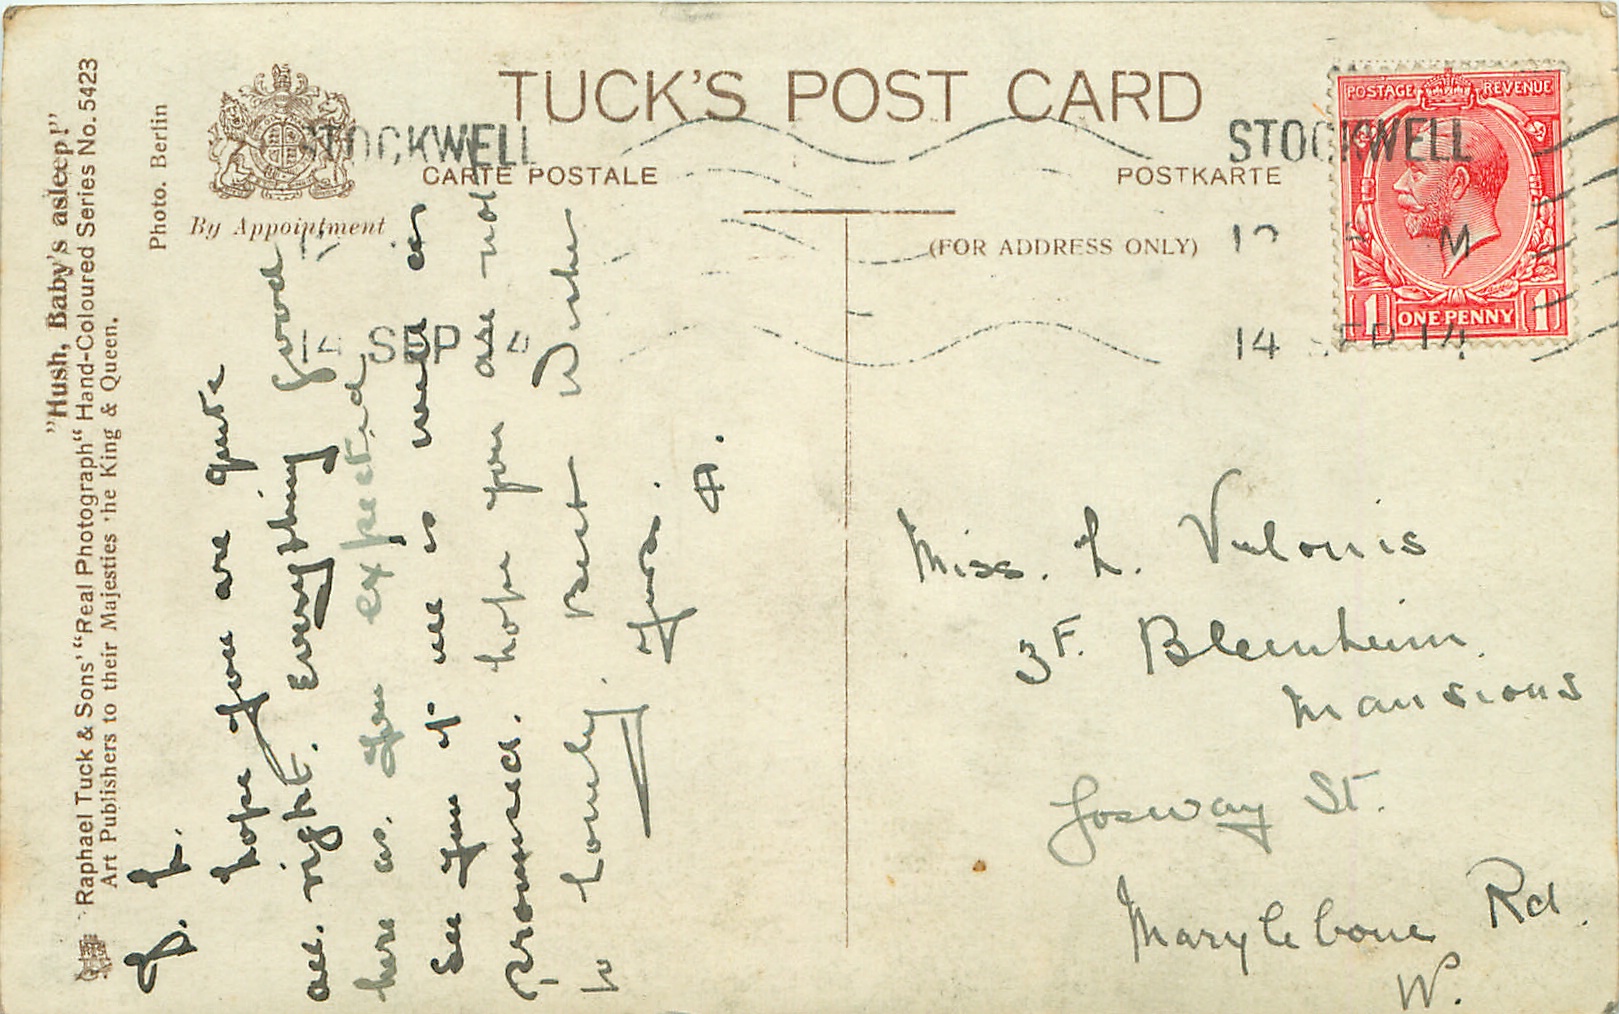 "Hush, Baby's asleep!"
Raphael Tuck & Sons' "Real Photograph" Hand-Coloured Series No. 5423
Art Publishers to their Majesties the King & Queen.
Photo. Berlin
By Appointment
TUCK'S POST CARD
CARTE POSTALE
POSTKARTE
(FOR ADDRESS ONLY)
STOCKWELL
14 SEP 14
STOCKWELL
14 SEP 14
POSTAGE REVENUE
1 ONE PENNY 1
D. L.
hope you are quite
all right. Everything good
here as you expected
See you it all is well as
promised. hope you are not
so lonely. Best Wishes
Yours.
A.
Miss. L. Vulonis
3F. Blenheim
Mansions
Josway St.
Marylebone Rd.
W.